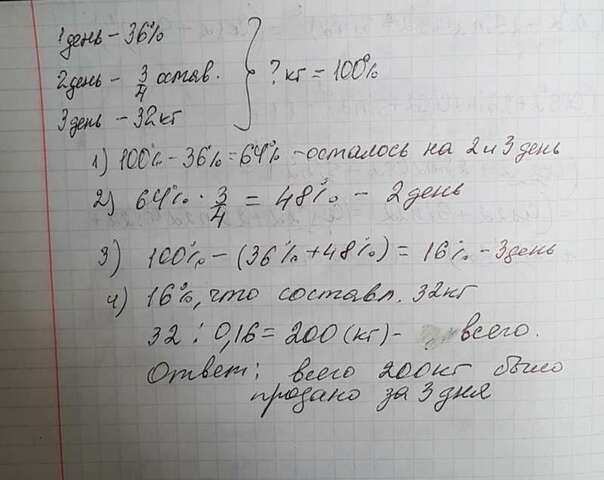 1 день - 36%
2 день - 3/4 остав.
3 день - 32 кг
} ? кг = 100%
1) 100% - 36% = 64% - осталось на 2 и 3 день
2) 64% · 3/4 = 48% - 2 день
3) 100% - (36% + 48%) = 16% - 3 день
4) 16%, что составл. 32 кг
32 : 0,16 = 200 (кг) - всего.
Ответ: всего 200 кг было
продано за 3 дня